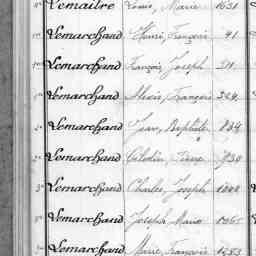 Lemaitre Louis, Marie 1631
Lemarchand Henri, François 41
Lemarchand François, Joseph 211
Lemarchand Alexis, François 324
2e Lemarchand Jean, Baptiste 834
2e Lemarchand Célestin, Pierre 930
3e Lemarchand Charles, Joseph
3e Lemarchand Joseph, Marie 1065
Lemarchand Marie, François 1253